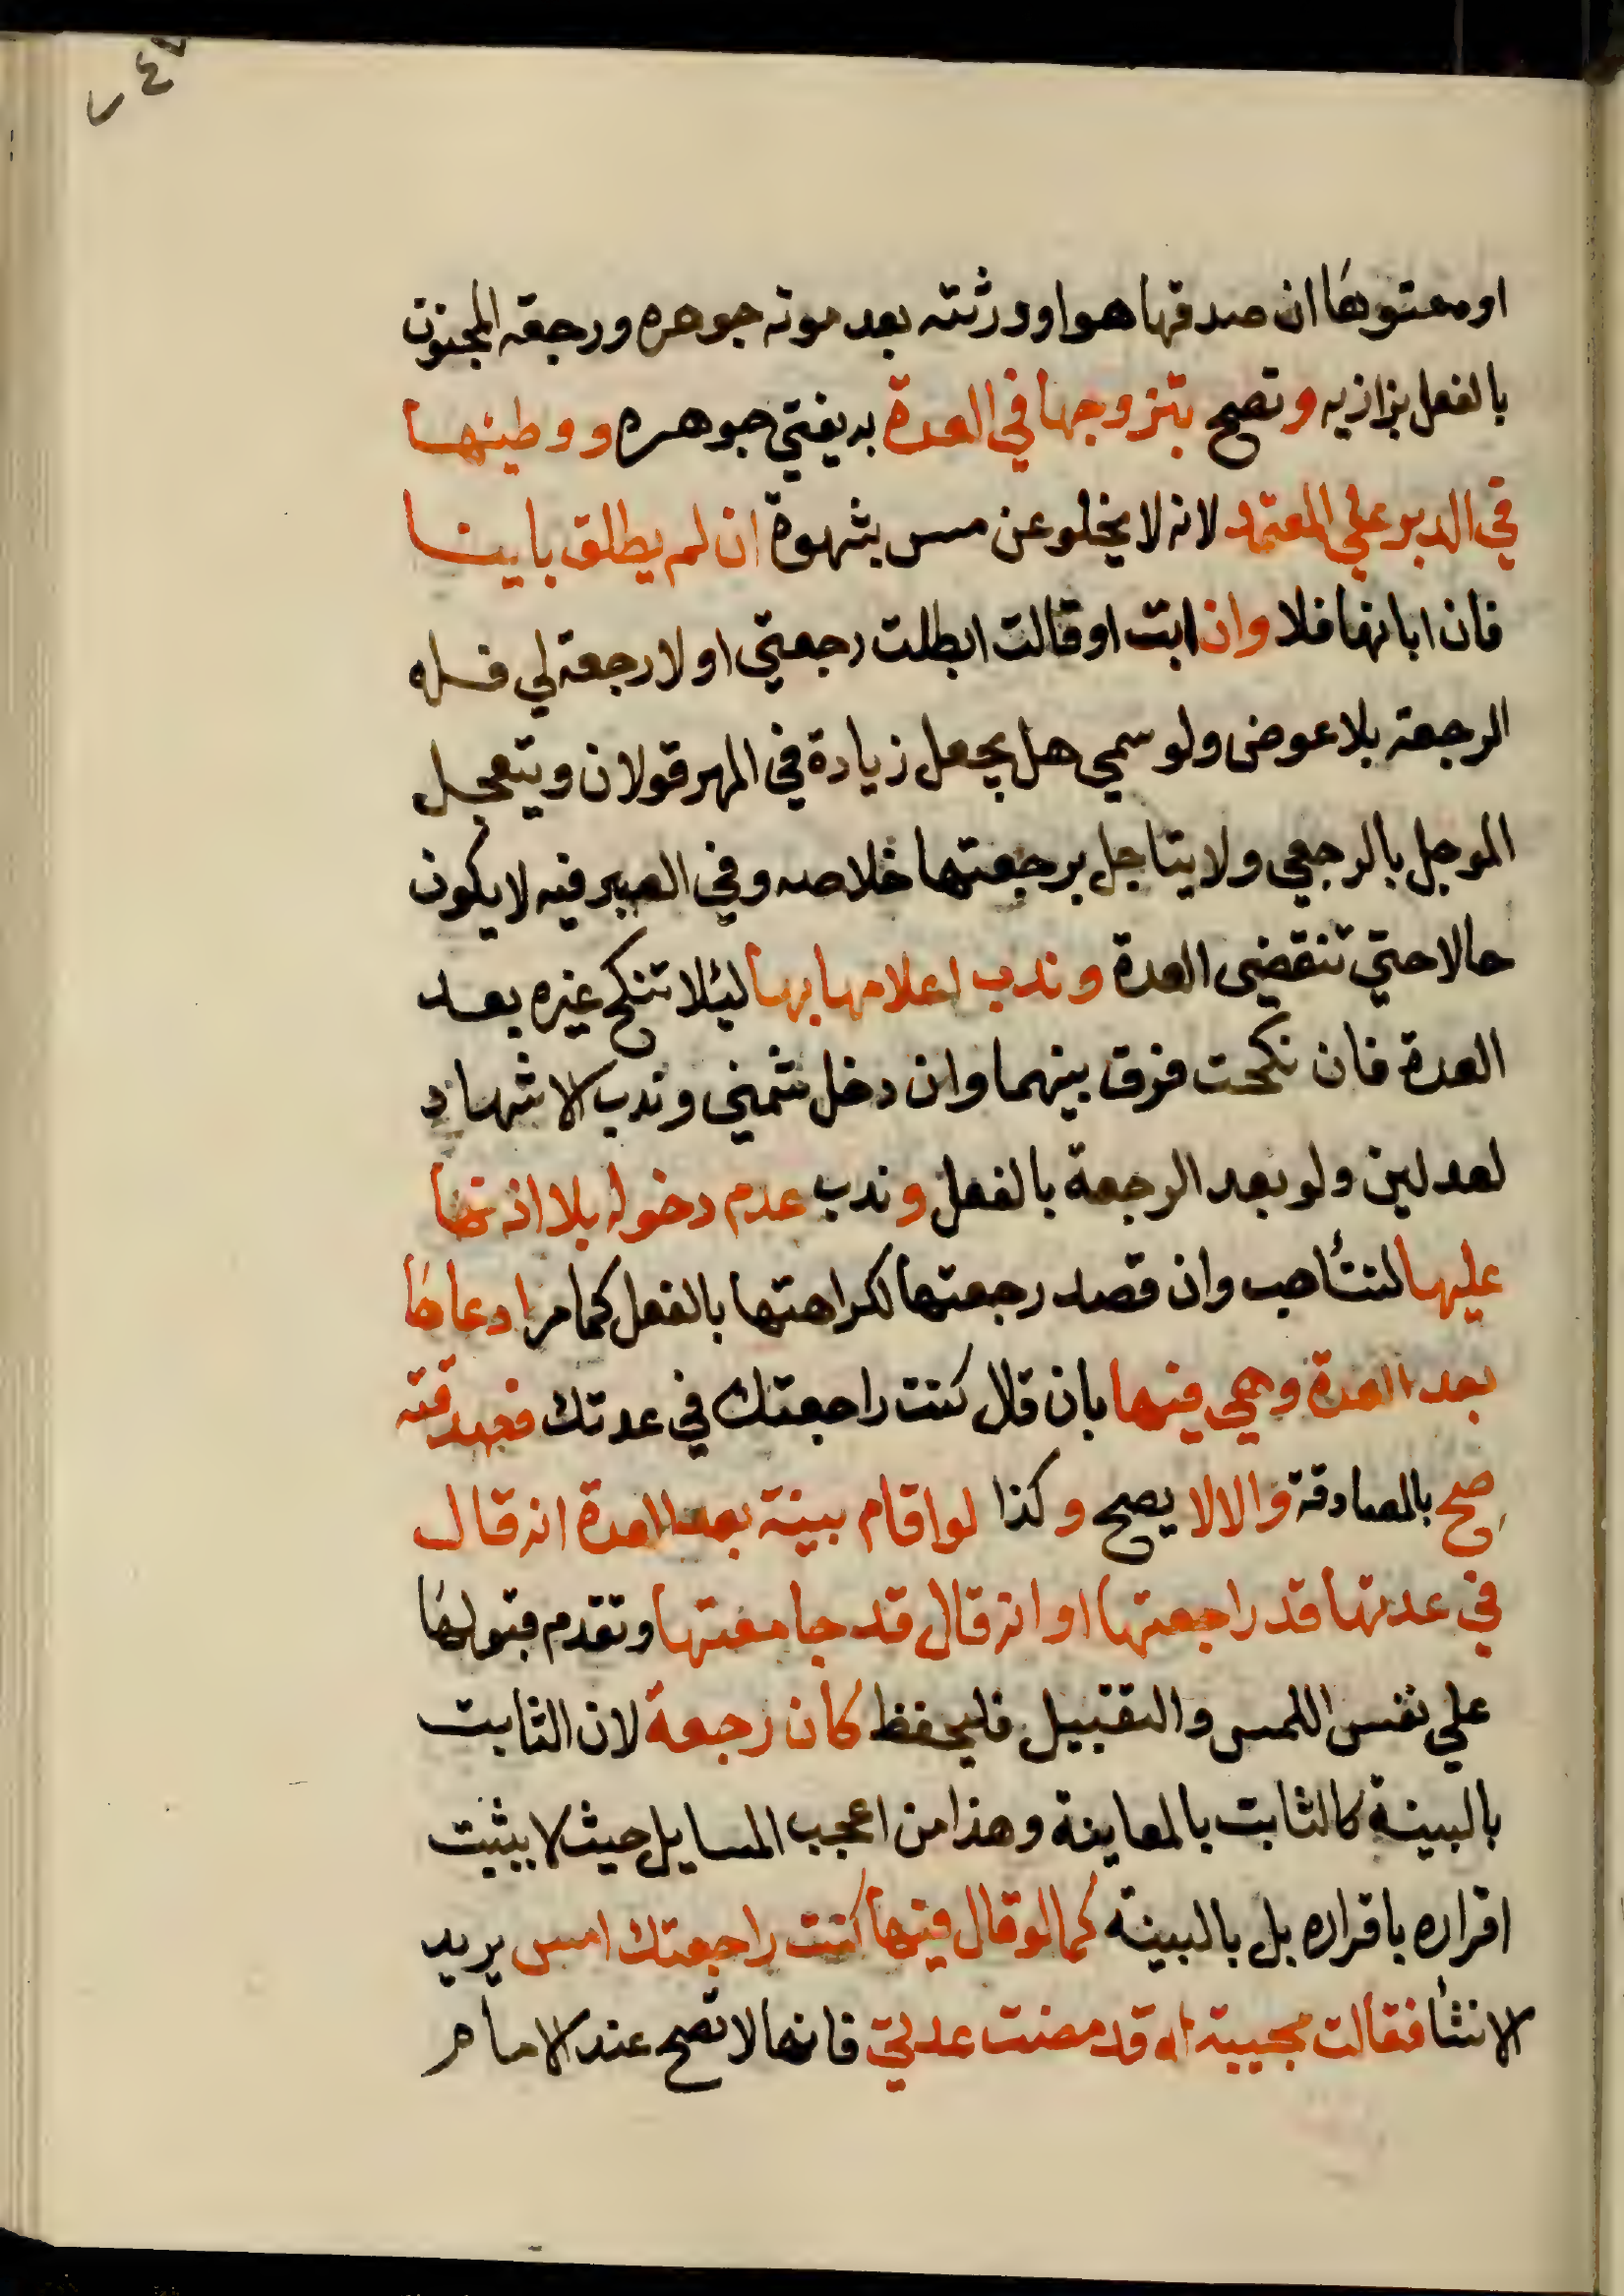 او معتوها ان صدقها هو او ورثته بعد موته جوهره ورجعة المجنون
بالفعل بزازيه وتصح بتزوجها في العدة به يفتي جوهره ووطئها
في الدبر علي المعتمد لانه لا يخلو عن مس بشهوة ان لم يطلق باينا
فان ابانها فلا وان ابت او قالت ابطلت رجعتي او لا رجعة لي فله
الرجعة بلا عوض ولو سمي هل يجعل زيادة في المهر قولان ويتعجل
الموجل بالرجعي ولا يتاجل برجعتها خلاصه وفي الصيرفيه لا يكون
حالا حتي تنقضي العدة وندب اعلامها بها ليئلا تنكح غيره بعد
العدة فان نكحت فرق بينهما وان دخل شمني وندب الاشهاد
لعدلين ولو بعد الرجعة بالفعل وندب عدم دخوله بلا اذنها
عليها لتتأهب وان قصد رجعتها لكراهتها بالفعل كما مر ادعاها
بعد العدة وهي فيها بان قال كنت راجعتك في عدتك فصدقته
صح بالمصادقة والا لا يصح وكذا لو اقام بينة بعد العدة انه قال
في عدتها قد راجعتها او انه قال قد جامعتها وتقدم قبولها
علي نفس اللمس والتقبيل فليحفظ كان رجعة لان الثابت
بالبينة كالثابت بالمعاينة وهذا من اعجب المسايل حيث لا يثبت
اقراره باقراره بل بالبينة كما لو قال فيها كنت راجعتك امس يريد
الانشأ فقالت مجيبة له قد مضت عدتي فانها لا تصح عند الامام